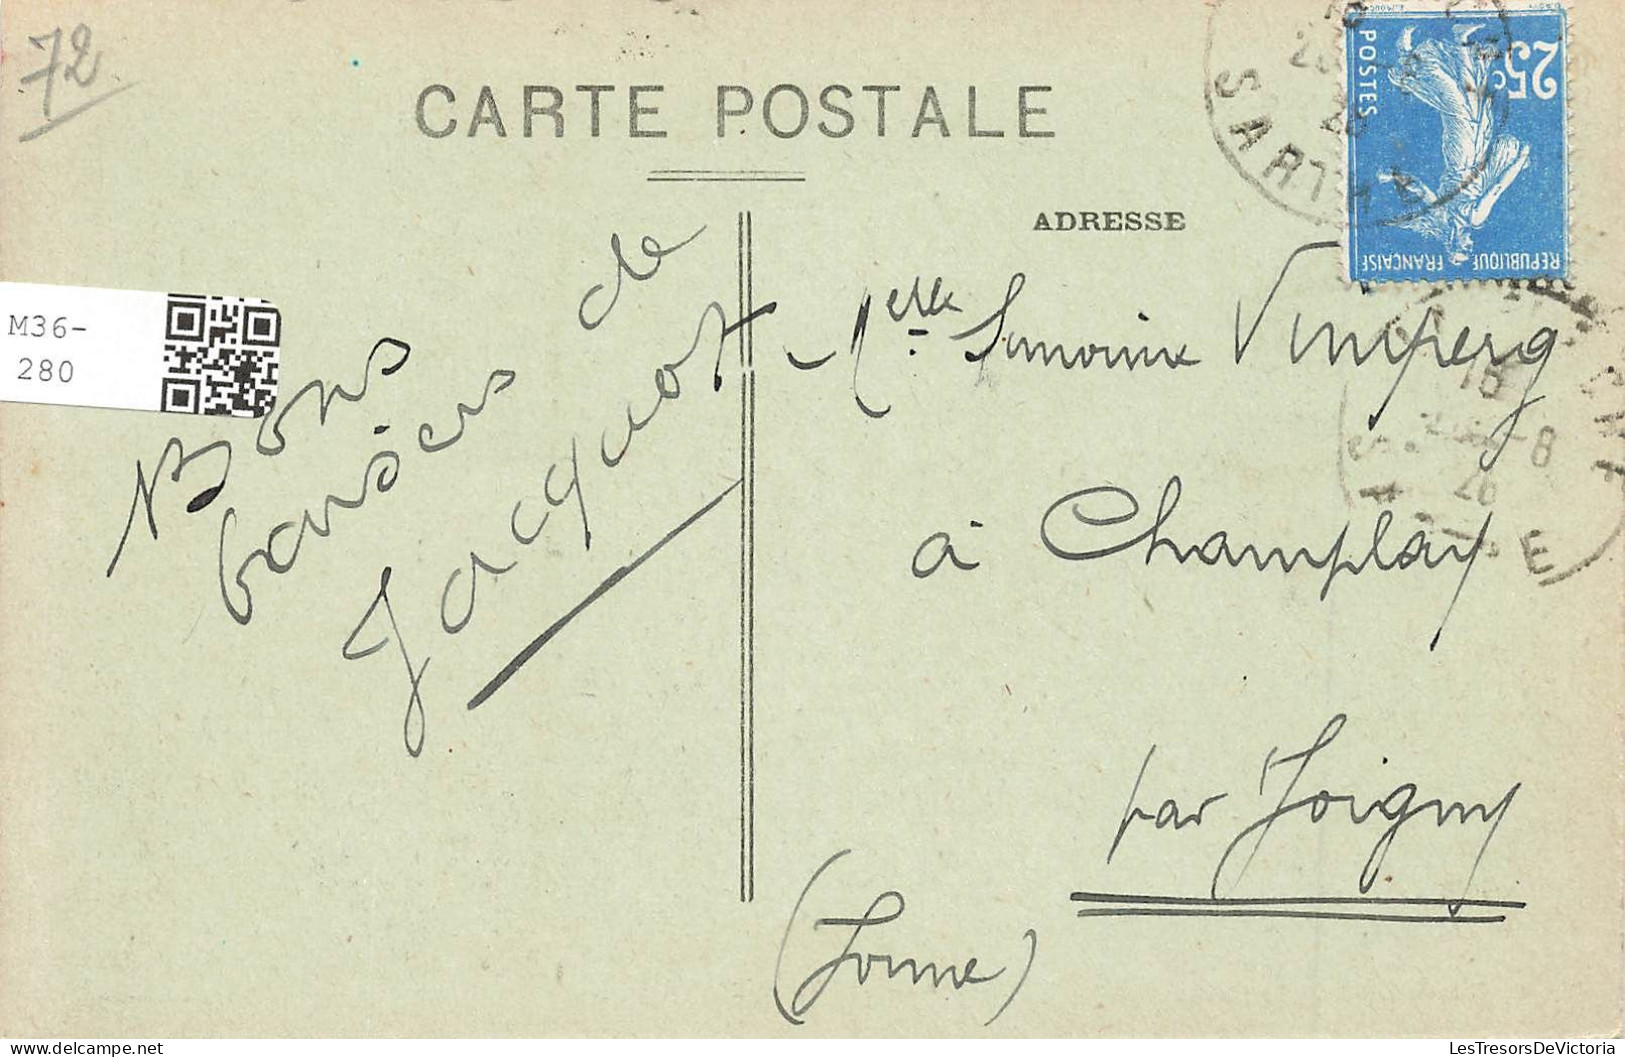 72
CARTE POSTALE
ADRESSE
25c
POSTES
REPUBLIQUE FRANÇAISE
SARTHE
M36-
280
Bons
baisers de
Jacquot
Melle Simonne Vimperg
à Champlay
par Joigny
(Yonne)
18
-8
26
E
LesTresorsDeVictoria